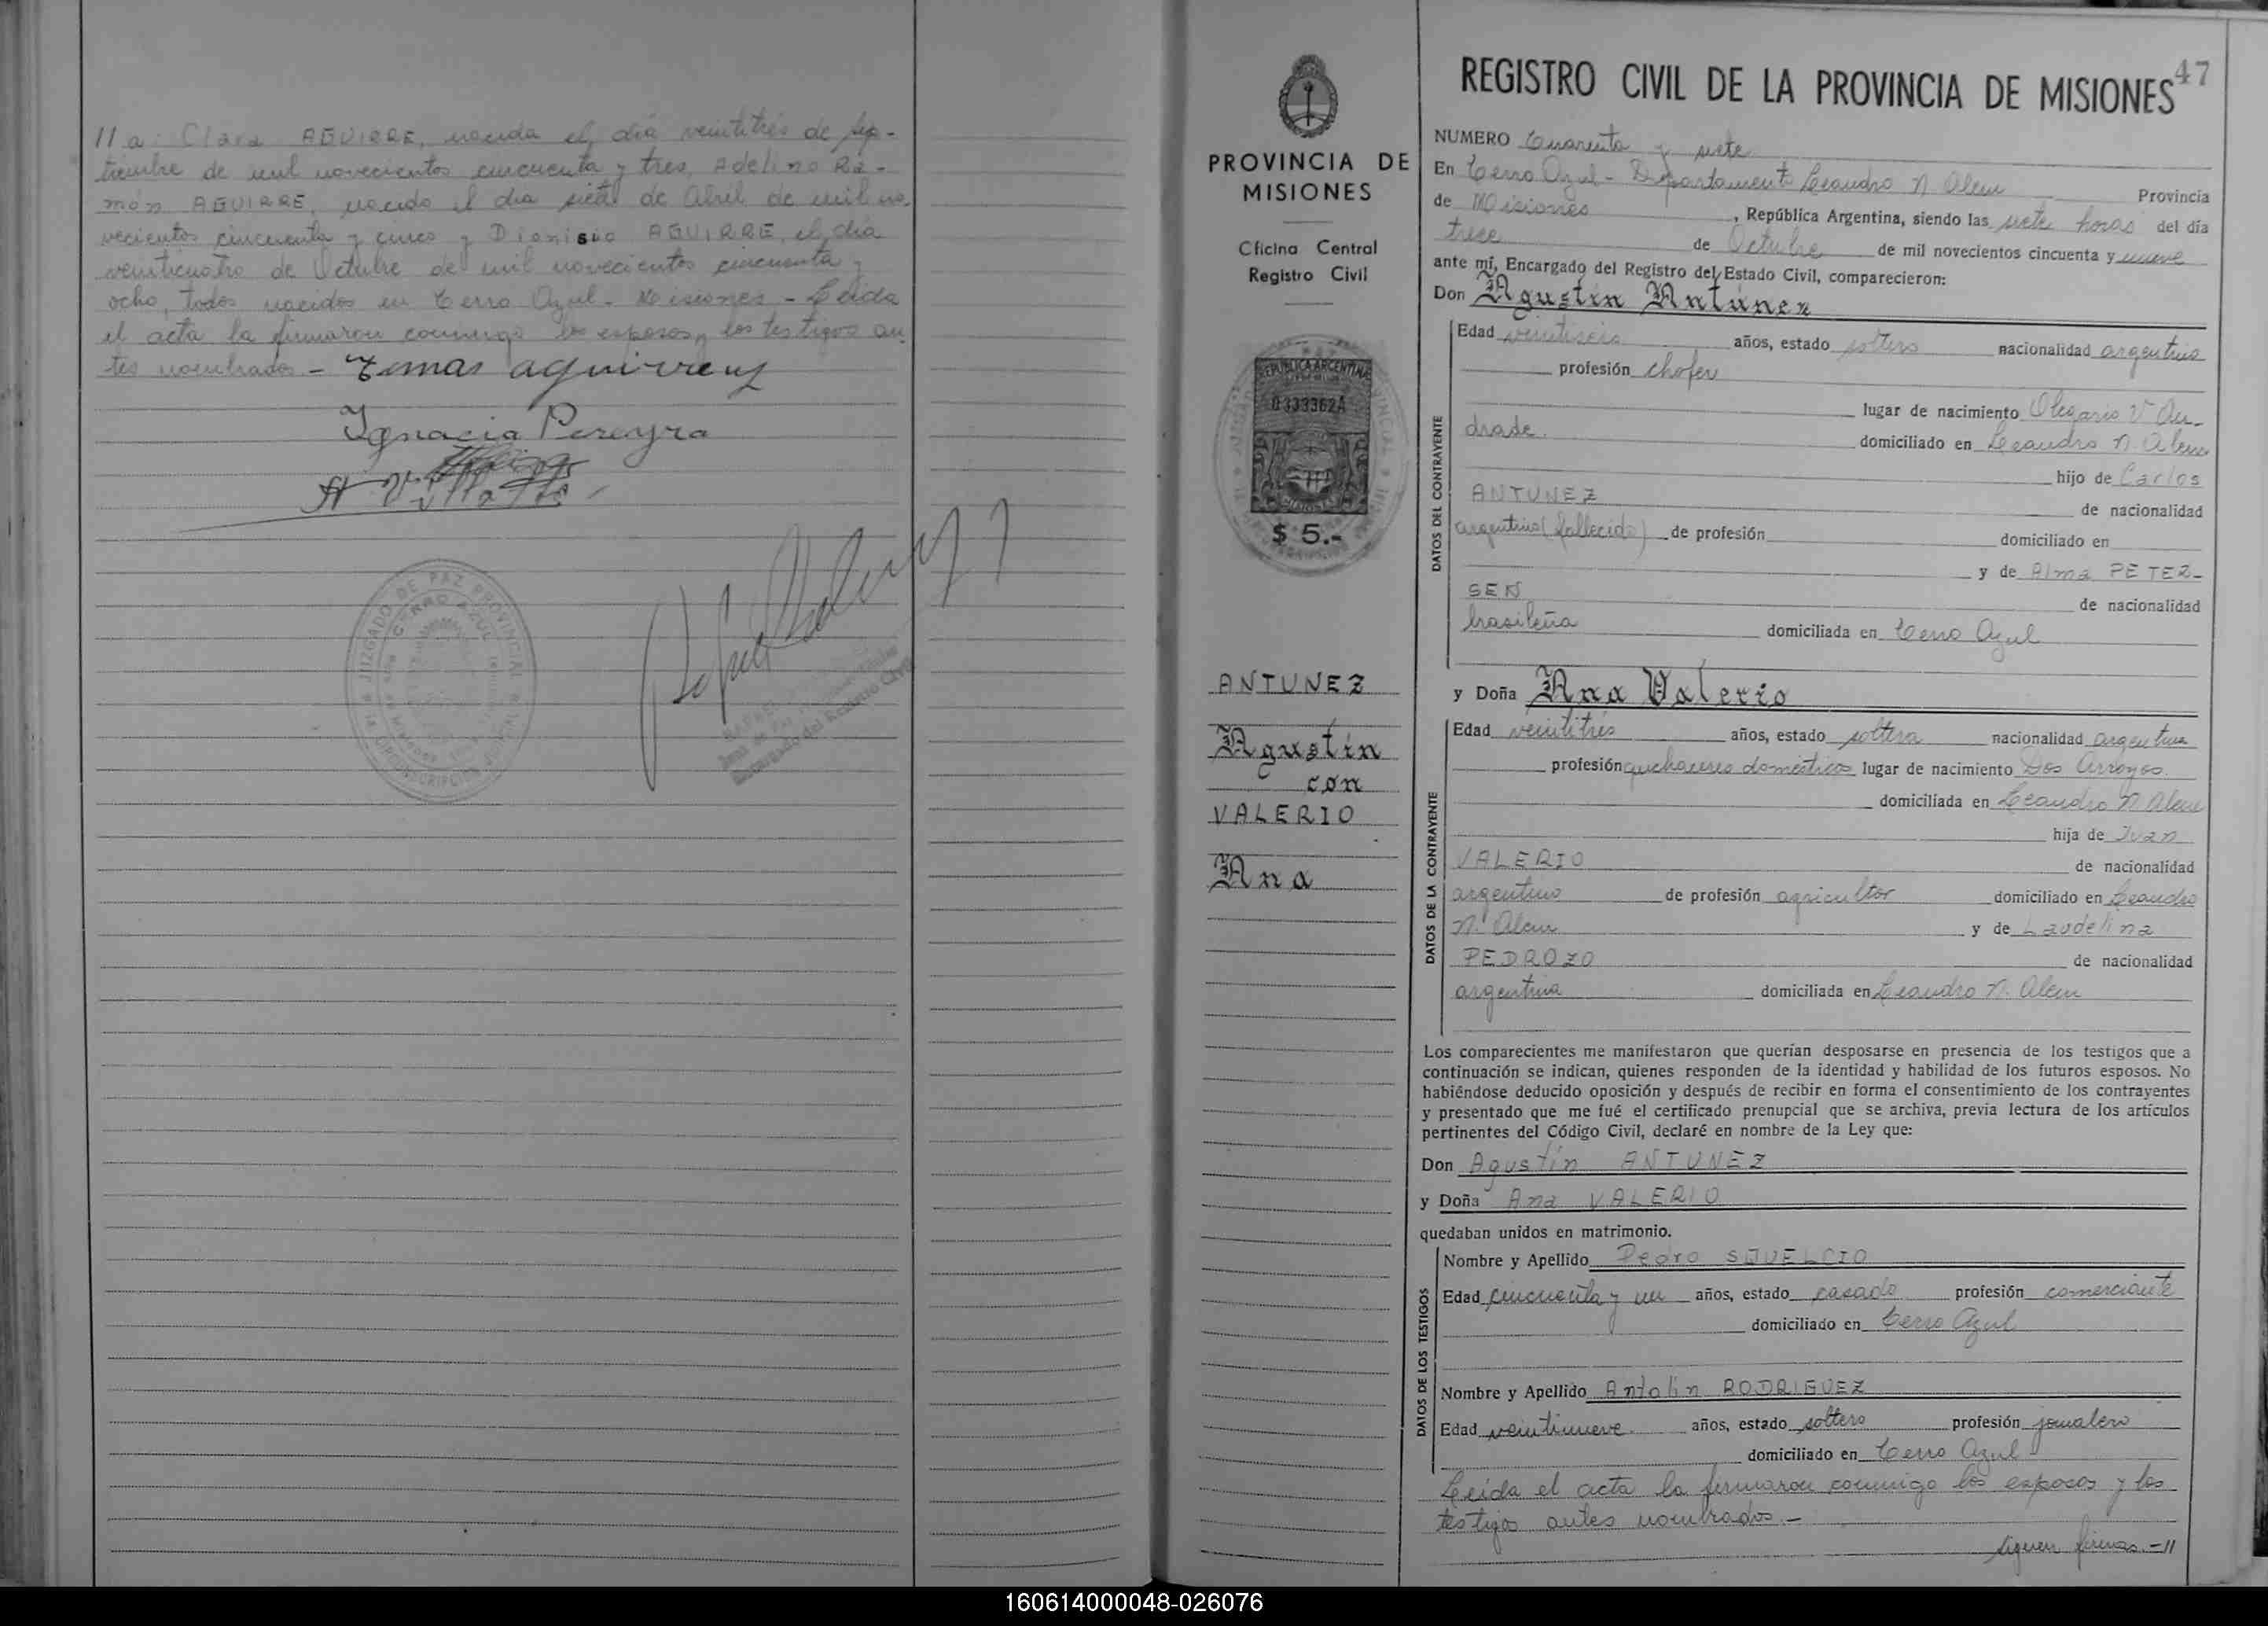 // a: Clara AGUIRRE, nacida el día veintitrés de Sep-
tiembre de mil novecientos cincuenta y tres, Adelino Ra-
món AGUIRRE, nacido el día siete de Abril de mil no-
vecientos cincuenta y cinco y Dionisio AGUIRRE, el día
veinticuatro de Octubre de mil novecientos cincuenta y
ocho, todos nacidos en Cerro Azul - Misiones - Leída
el acta la firmaron conmigo los esposos y los testigos an-
tes nombrados -
Ignacia Pereyra
JUZGADO DE PAZ PROVINCIAL
CERRO AZUL
Encargado del Registro Civil
PROVINCIA DE
MISIONES
Oficina Central
Registro Civil
REPUBLICA ARGENTINA
0333362A
$ 5.-
ANTUNEZ
Agustín
con
VALERIO
Ana
47
REGISTRO CIVIL DE LA PROVINCIA DE MISIONES
NUMERO Cuarenta y siete
En Cerro Azul - Departamento Leandro N. Alem Provincia
de Misiones, República Argentina, siendo las siete horas del día
trece de Octubre de mil novecientos cincuenta y nueve
ante mí, Encargado del Registro del Estado Civil, comparecieron:
Don Agustín Antúnez
DATOS DEL CONTRAYENTE
Edad veintiseis años, estado soltero nacionalidad argentina
profesión chofer
lugar de nacimiento Olegario V. An-
drade. domiciliado en Leandro N. Alem
hijo de Carlos
ANTUNEZ de nacionalidad
argentino (fallecido) de profesión domiciliado en
y de Alma PETER-
SEN de nacionalidad
brasileña domiciliada en Cerro Azul
y Doña Ana Valerio
DATOS DE LA CONTRAYENTE
Edad veintitrés años, estado soltera nacionalidad argentina
profesión quehaceres domésticos lugar de nacimiento Dos Arroyos
domiciliada en Leandro N. Alem
hija de Juan
VALERIO de nacionalidad
argentino de profesión agricultor domiciliado en Leandro
N. Alem y de Laudelina
PEDROZO de nacionalidad
argentina domiciliada en Leandro N. Alem
Los comparecientes me manifestaron que querían desposarse en presencia de los testigos que a
continuación se indican, quienes responden de la identidad y habilidad de los futuros esposos. No
habiéndose deducido oposición y después de recibir en forma el consentimiento de los contrayentes
y presentado que me fué el certificado prenupcial que se archiva, previa lectura de los artículos
pertinentes del Código Civil, declaré en nombre de la Ley que:
Don Agustín ANTUNEZ
y Doña Ana VALERIO
quedaban unidos en matrimonio.
DATOS DE LOS TESTIGOS
Nombre y Apellido Pedro SQUELCIO
Edad cincuenta y un años, estado casado profesión comerciante
domiciliado en Cerro Azul
Nombre y Apellido Antolín RODRIGUEZ
Edad veintinueve años, estado soltero profesión jornalero
domiciliado en Cerro Azul
Leída el acta la firmaron conmigo los esposos y los
testigos antes nombrados.-
Siguen firmas.-//
160614000048-026076